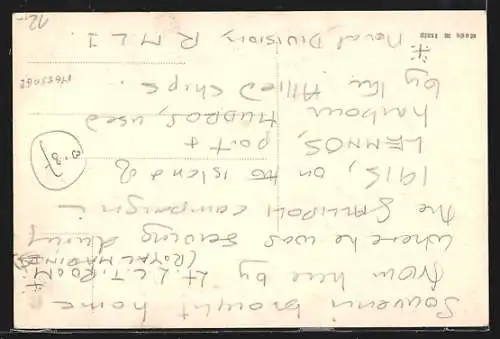 Souvenir brought home
from here by Lt. L. C. T. ROOM *
(ROYAL MARINES)
where he was serving during
the GALLIPOLI campaign in
1915, on to island of
LEMNOS, port &
harbour MUDROS, used
by the Allied ships.
* Naval Division, R M L I.
Made in
12,-